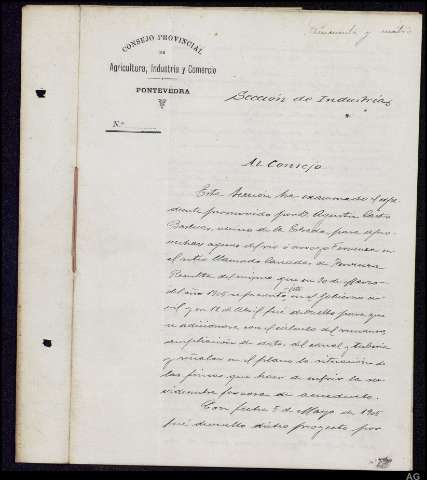 Cincuenta y cuatro
CONSEJO PROVINCIAL
DE
Agricultura, Industria y Comercio
PONTEVEDRA
N.º
Sección de Industrias
Al Consejo
Esta Sección ha examinado el expe-
diente promovido por D. Agustín
vecino de la Estrada para apro-
vechar aguas del río ó arroyo en
el sitio llamado de
Resulta del mismo que en 30 de Marzo
del año 1905 se presentó este en el Gobierno ci-
vil y en 12 de Abril fué devuelto para que
se adicionara con el cálculo del
ampliación de datos del canal y tubería
y señalar en el plano la situación de
las fincas que han de sufrir la ser-
vidumbre forzosa de acueducto.
Con fecha 5 de Mayo de 1905
fué devuelto dicho proyecto por
AG